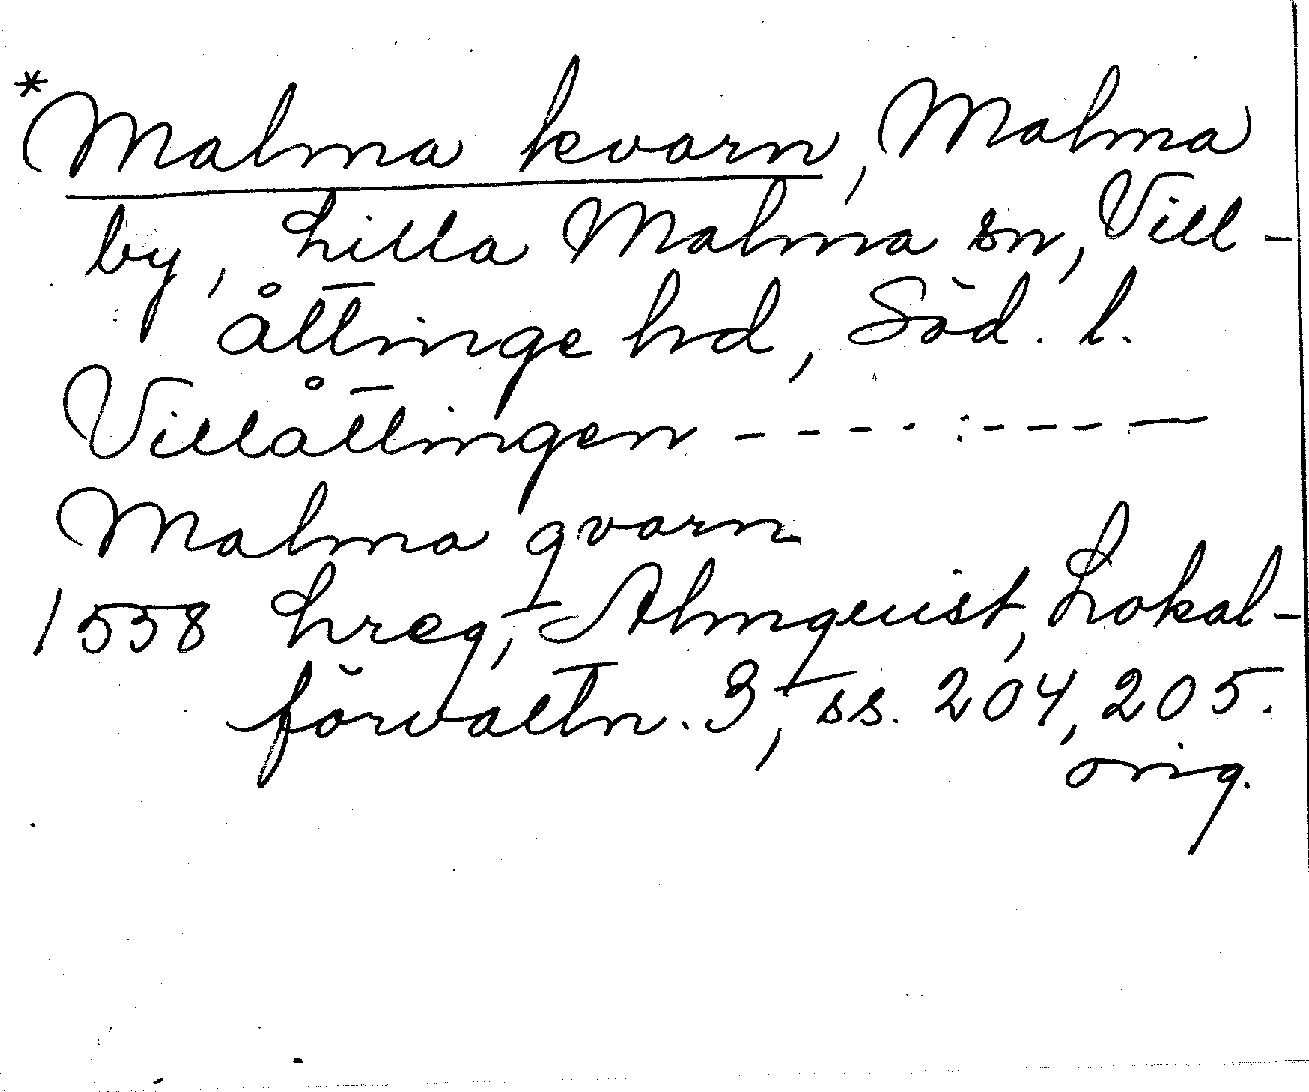 *Malma kvarn, Malma
by, Lilla Malma sn, Vill-
åttinge hd, Söd. l.
Villåttingen - - - - : - - - —
Malma qvarn
1558 Lreg, Almquist, Lokal-
förvaltn. 3, ss. 204, 205.
orig.